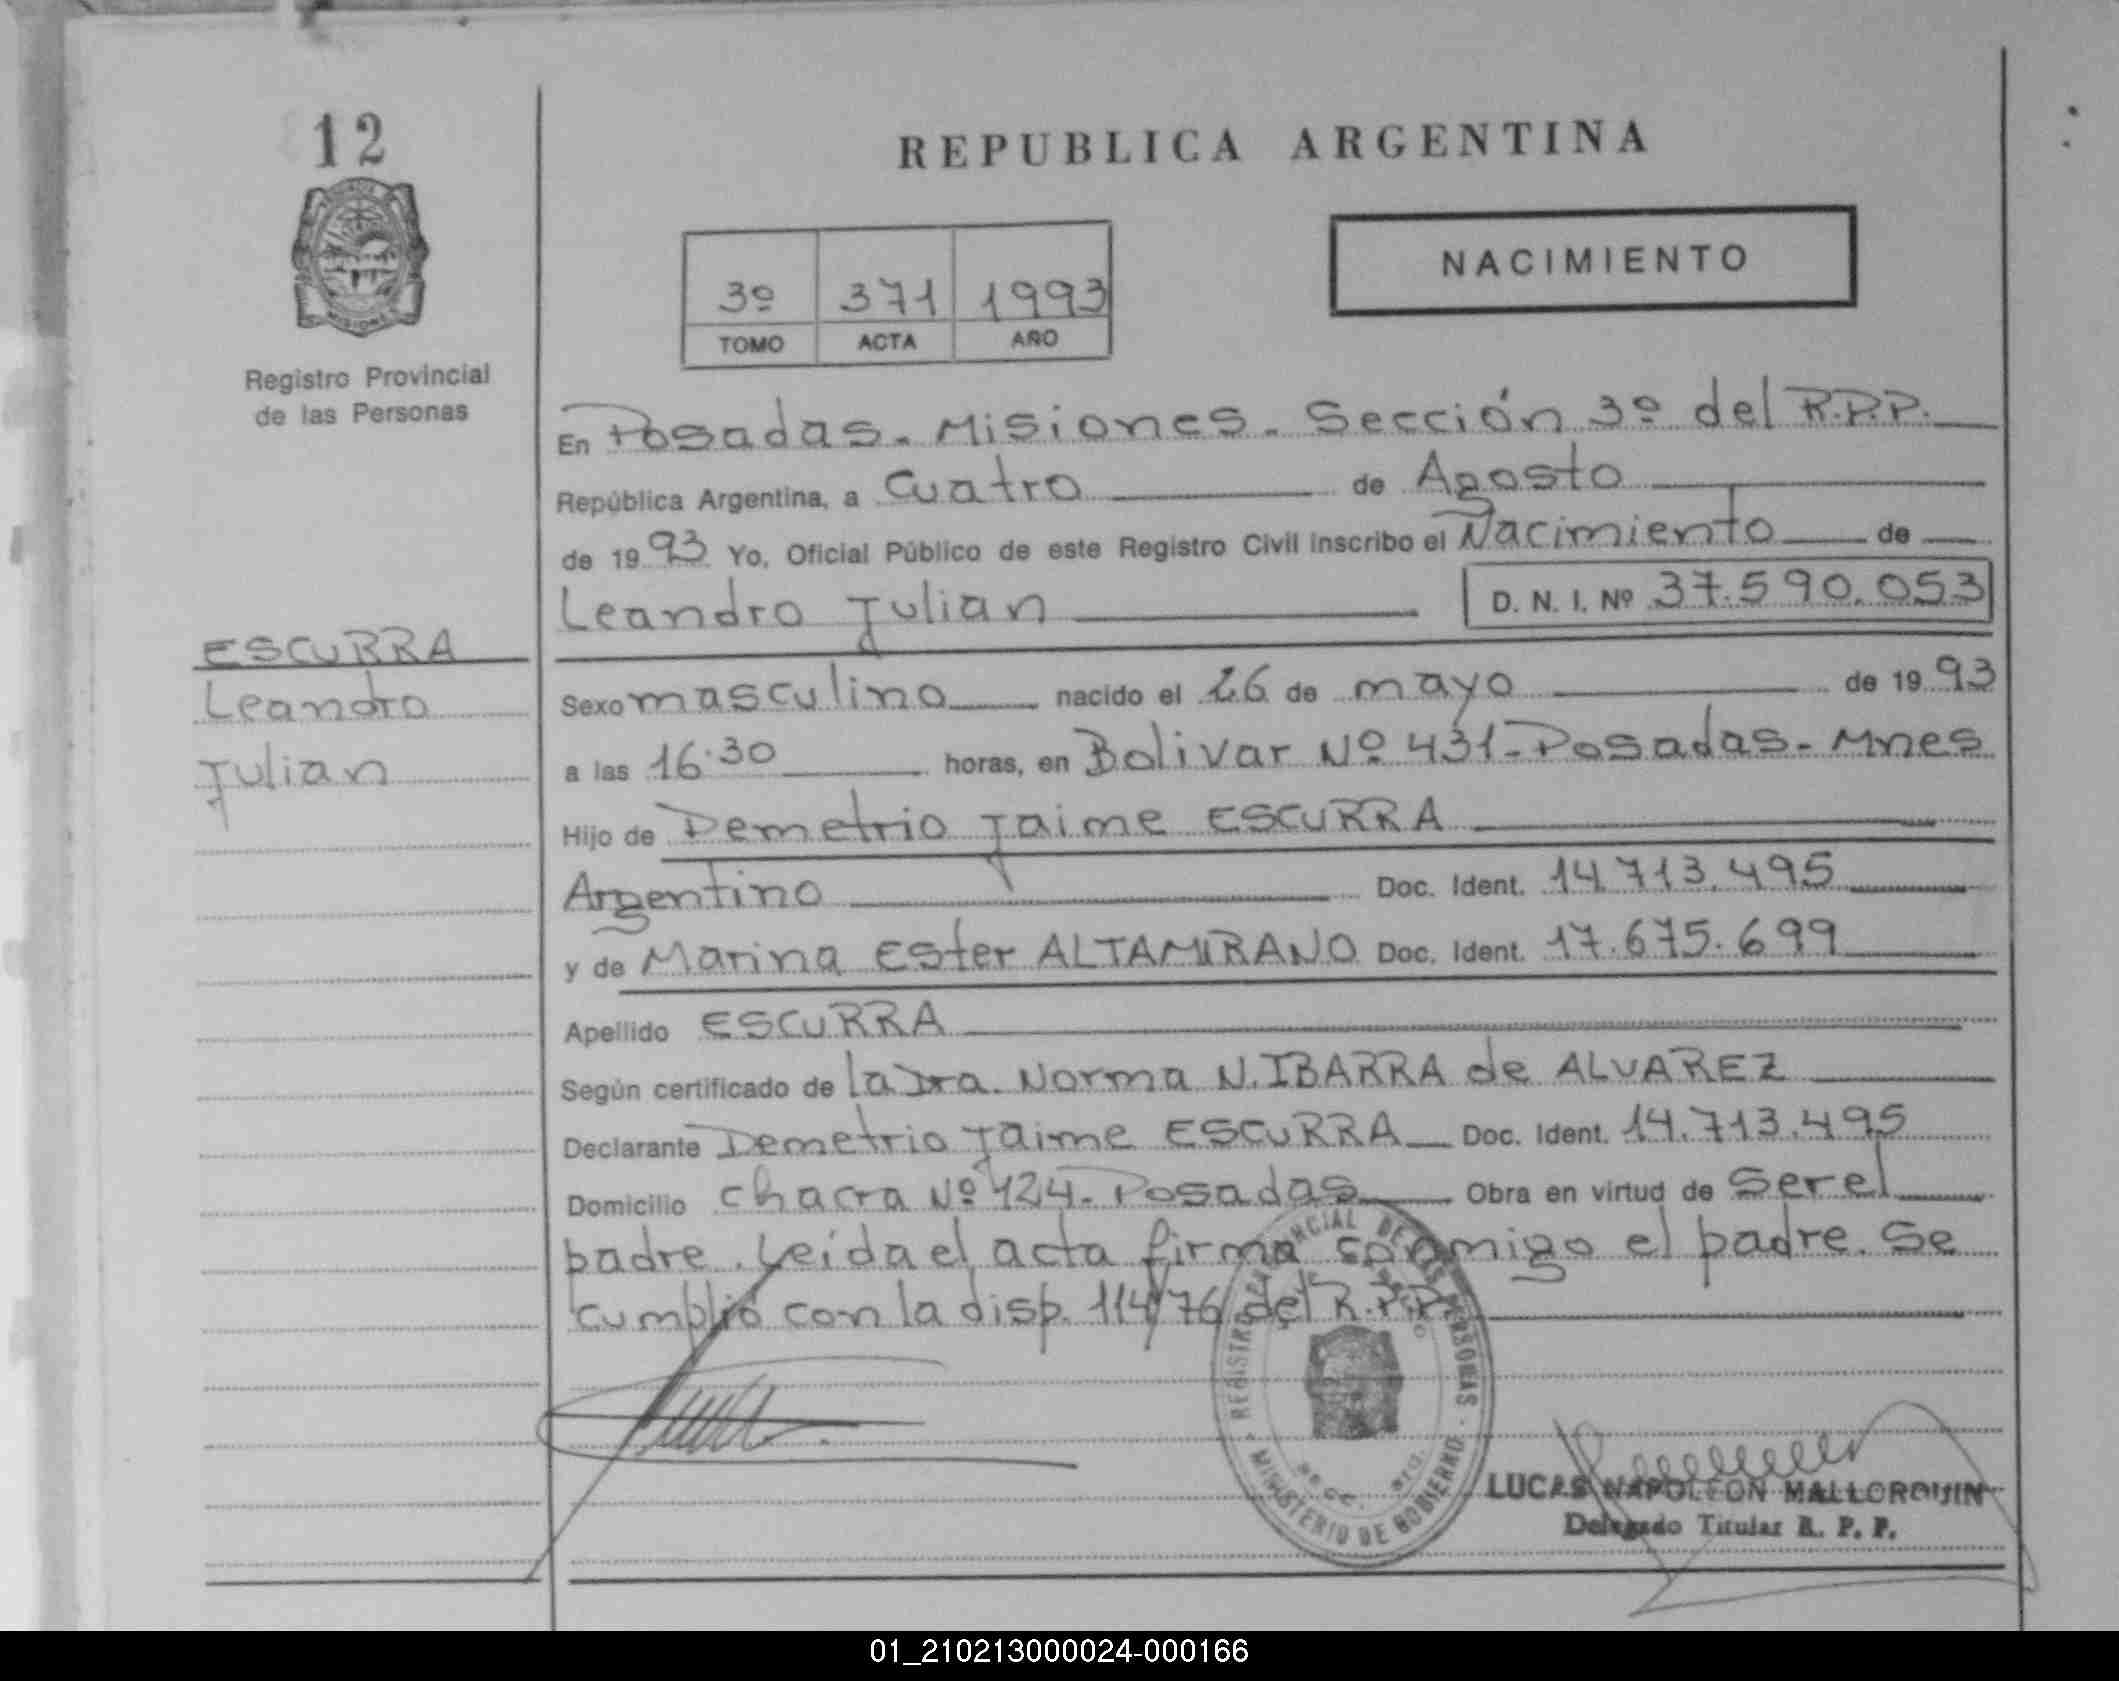 12
MISIONES
Registro Provincial
de las Personas
ESCURRA
Leandro
Julian
REPUBLICA ARGENTINA
NACIMIENTO
3º 371 1993
TOMO ACTA AÑO
En Posadas - Misiones - Sección 3º del R.P.P.
República Argentina, a Cuatro de Agosto
de 1993 Yo, Oficial Público de este Registro Civil inscribo el Nacimiento de
Leandro Julian D. N. I. Nº 37.590.053
Sexo masculino nacido el 26 de mayo de 1993
a las 16.30 horas, en Bolivar Nº 431 - Posadas - Mnes
Hijo de Demetrio Jaime ESCURRA
Argentino Doc. Ident. 14.713.495
y de Marina Ester ALTAMIRANO Doc. Ident. 17.675.699
Apellido ESCURRA
Según certificado de la Dra. Norma N. IBARRA de ALVAREZ
Declarante Demetrio Jaime ESCURRA Doc. Ident. 14.713.495
Domicilio chacra Nº 124 - Posadas Obra en virtud de ser el
padre. Leida el acta firma conmigo el padre. Se
cumplió con la disp. 114/76 del R.P.P.
REGISTRO PROVINCIAL DE LAS PERSONAS
MINISTERIO DE GOBIERNO
LUCAS NAPOLEON MALLORQUIN
Delegado Titular R. P. P.
01_210213000024-000166